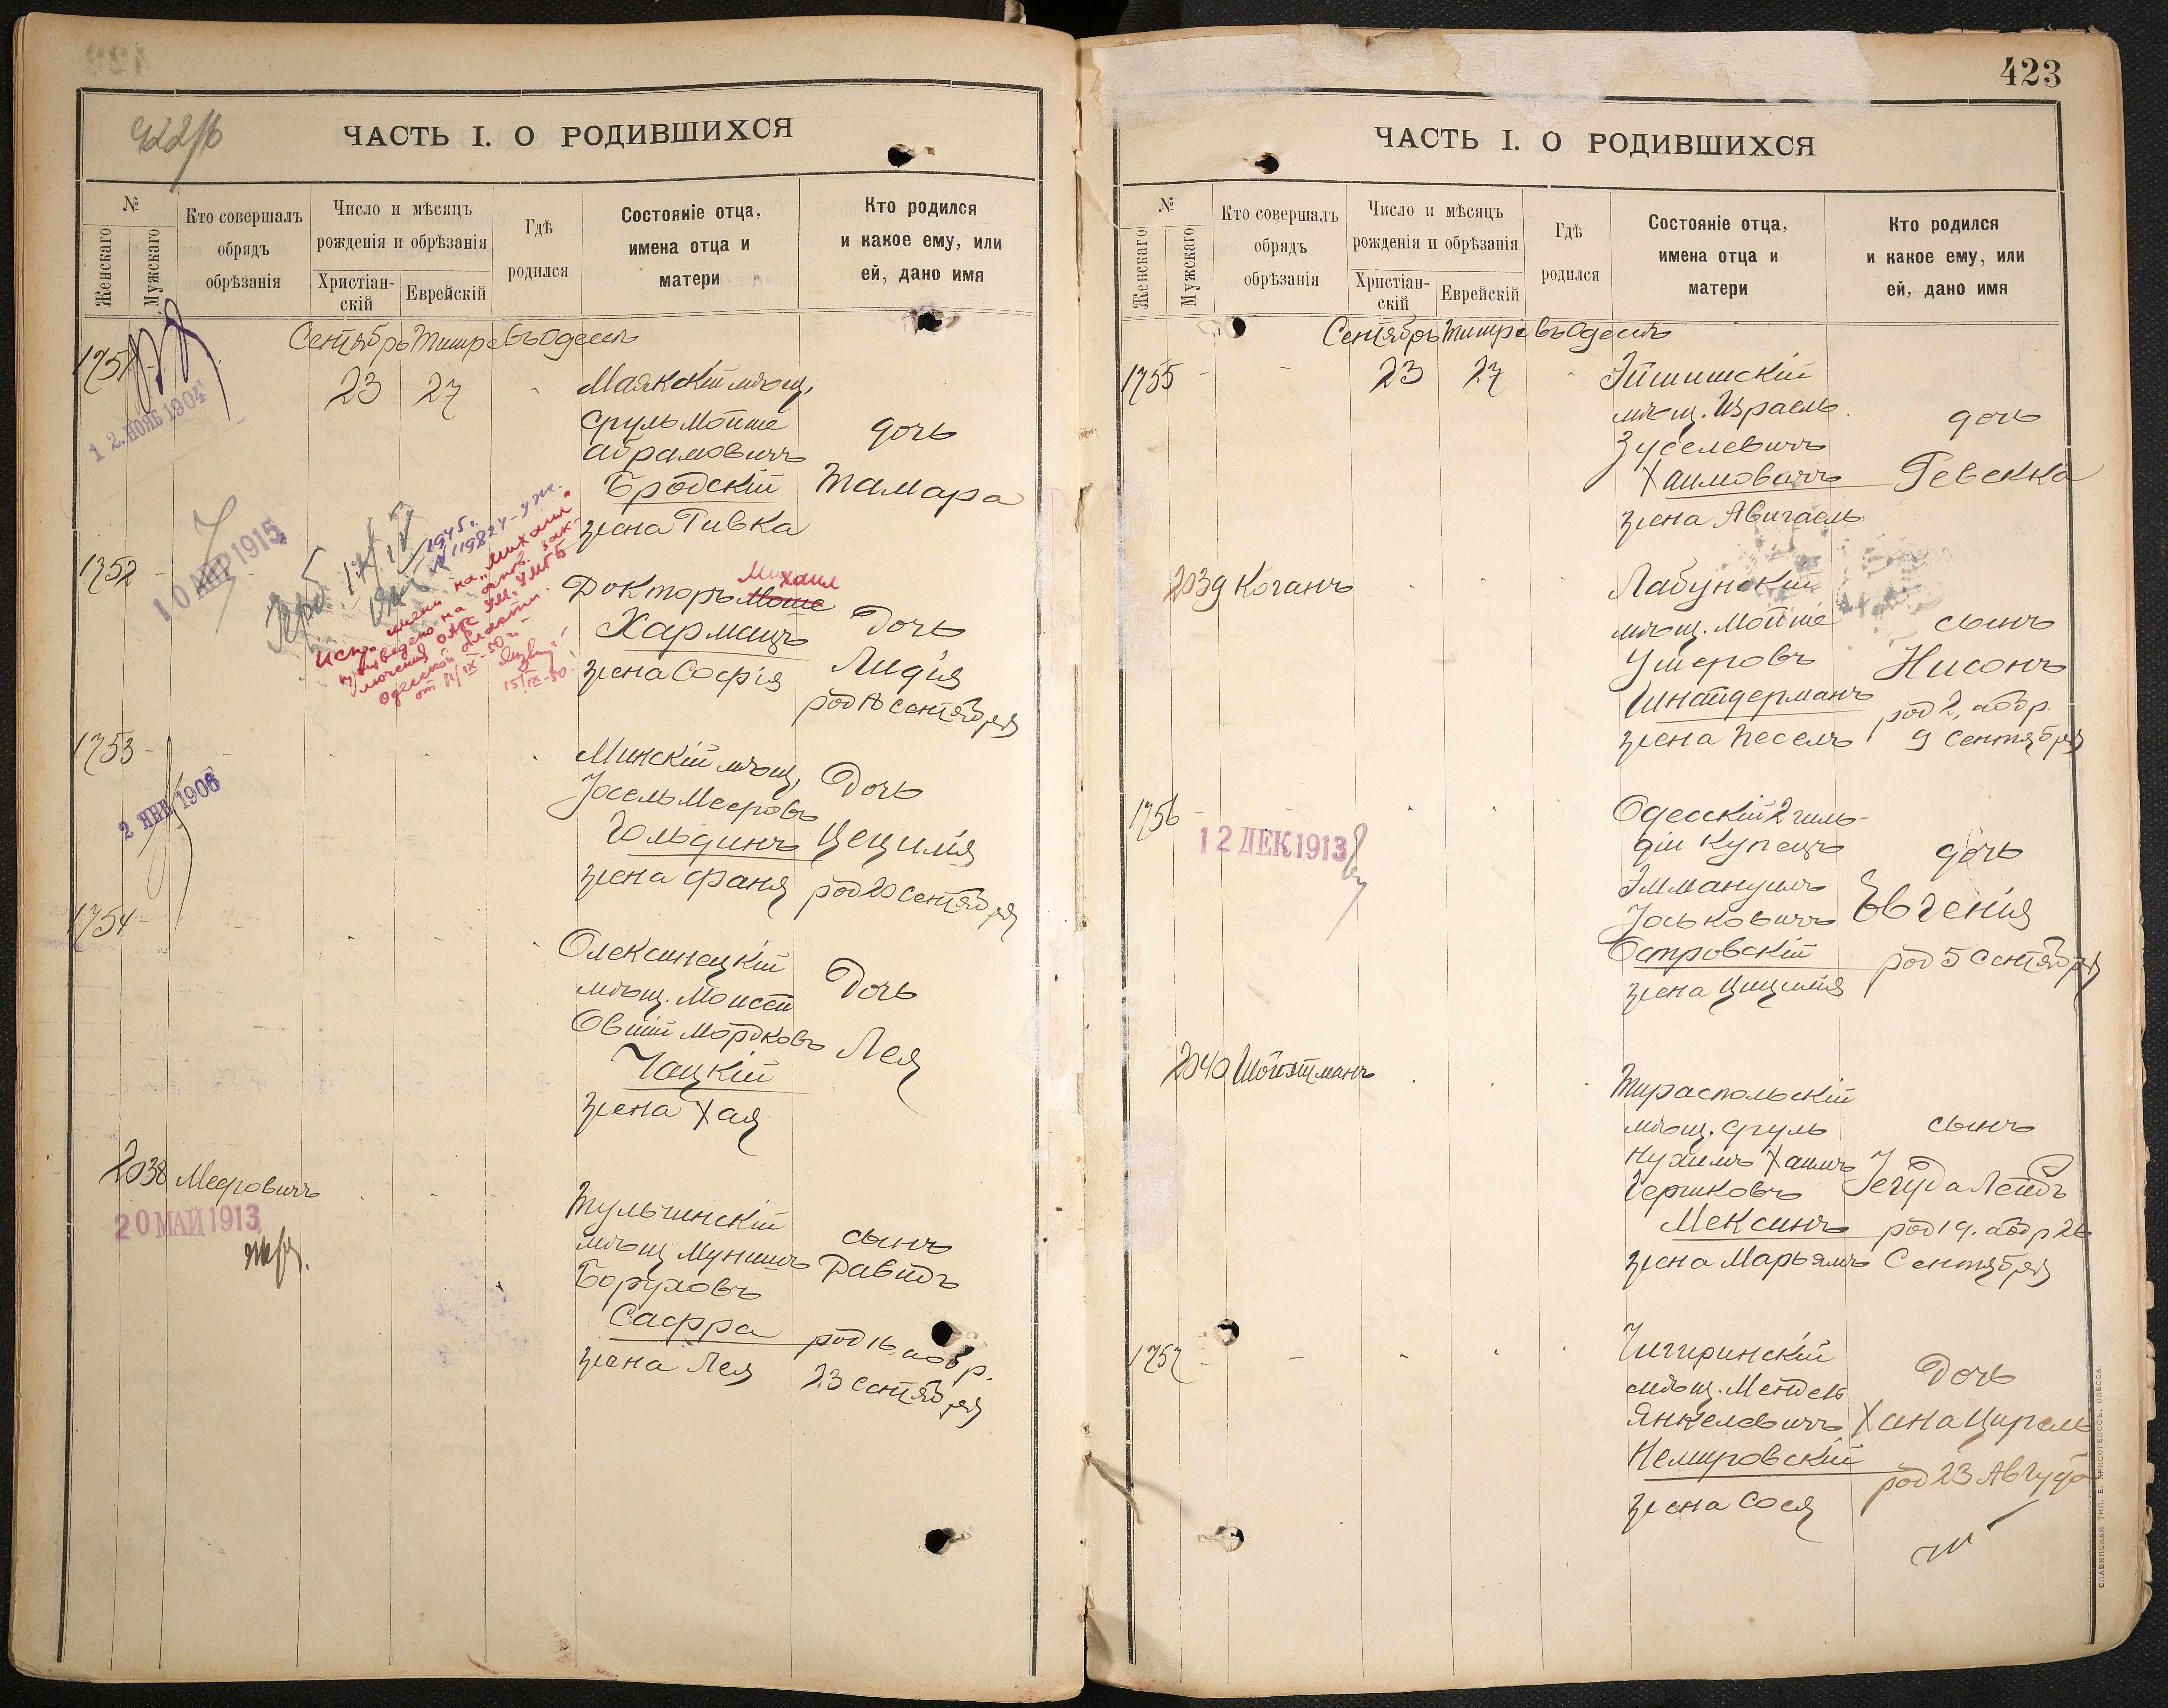 422/б
ЧАСТЬ I. О РОДИВШИХСЯ
№
Женскаго
Мужскаго
Кто совершалъ
обрядъ
обрѣзанія
Число и мѣсяцъ
рожденія и обрѣзанія
Христіан-
скій
Еврейскій
Гдѣ
родился
Состояніе отца,
имена отца и
матери
Кто родился
и какое ему, или
ей, дано имя
Сентябрь Тишре въ Одессѣ
1751
12. НОЯБ 1904
23 27
Маякскій мѣщ.
Сруль Мойше
Абрамовичъ
Бродскій
жена Ривка
дочь
Тамара
10 АПР 1915
1945 г.
№ 119824-уж.
1752
имени на „Михаил"
от 12/IX-50 г.
15/IX-50
Докторъ Моше
Михаил
Хармацъ
жена Софія
Дочь
Лидія
род 18 сентября
1753
2 ЯНВ 1906
Минскій мѣщ.
Іосель Мееровъ
Гольдинъ
жена Фаня
Дочь
Цецилія
род 20 сентября
1754
Олексинецкій
мѣщ. Моисей
Овшій Мордковъ
Чацкій
жена Хая
Дочь
Лея
2038 Мееровичъ
20 МАЙ 1913
Тульчинскій
мѣщ Мунишъ
Боруховъ
Сафра
жена Лея
сынъ
Давидъ
род 16, обр.
23 сентября
423
ЧАСТЬ I. О РОДИВШИХСЯ
№
Женскаго
Мужскаго
Кто совершалъ
обрядъ
обрѣзанія
Число и мѣсяцъ
рожденія и обрѣзанія
Христіан-
скій
Еврейскій
Гдѣ
родился
Состояніе отца,
имена отца и
матери
Кто родился
и какое ему, или
ей, дано имя
Сентябрь Тишре въ Одессѣ
1755
23 27
Эйшишскій
мѣщ. Израель
Зуселевичъ
Хаимовичъ
жена Авигаель
дочь
Ревекка
2039 Коганъ
Лабунскій
мѣщ. Мойше
Ушеровъ
Шнайдерманъ
жена Песель
сынъ
Нисонъ
род 2, обр.
9 сентября
1756
12 ДЕК 1913
Одесскій 2 гиль-
діи купецъ
Эммануилъ
Іоськовичъ
Островскій
жена Цицилія
дочь
Евгенія
род 5 сентября
2040 Шойхтманъ
Тираспольскій
мѣщ. Сруль
Нухимъ Хаимъ
Гершковъ
Мексинъ
жена Марьямъ
сынъ
Іегуда Лейбъ
род 19. обр 26
Сентября
1757
Чигиринскій
мѣщ. Мендель
Янкелевичъ
Немировскій
жена Сося
Дочь
Хана Цирель
род 23 Августа
СЛАВЯНСКАЯ ТИП. Е. ХРИСОГЕЛОСЪ, ОДЕССА.